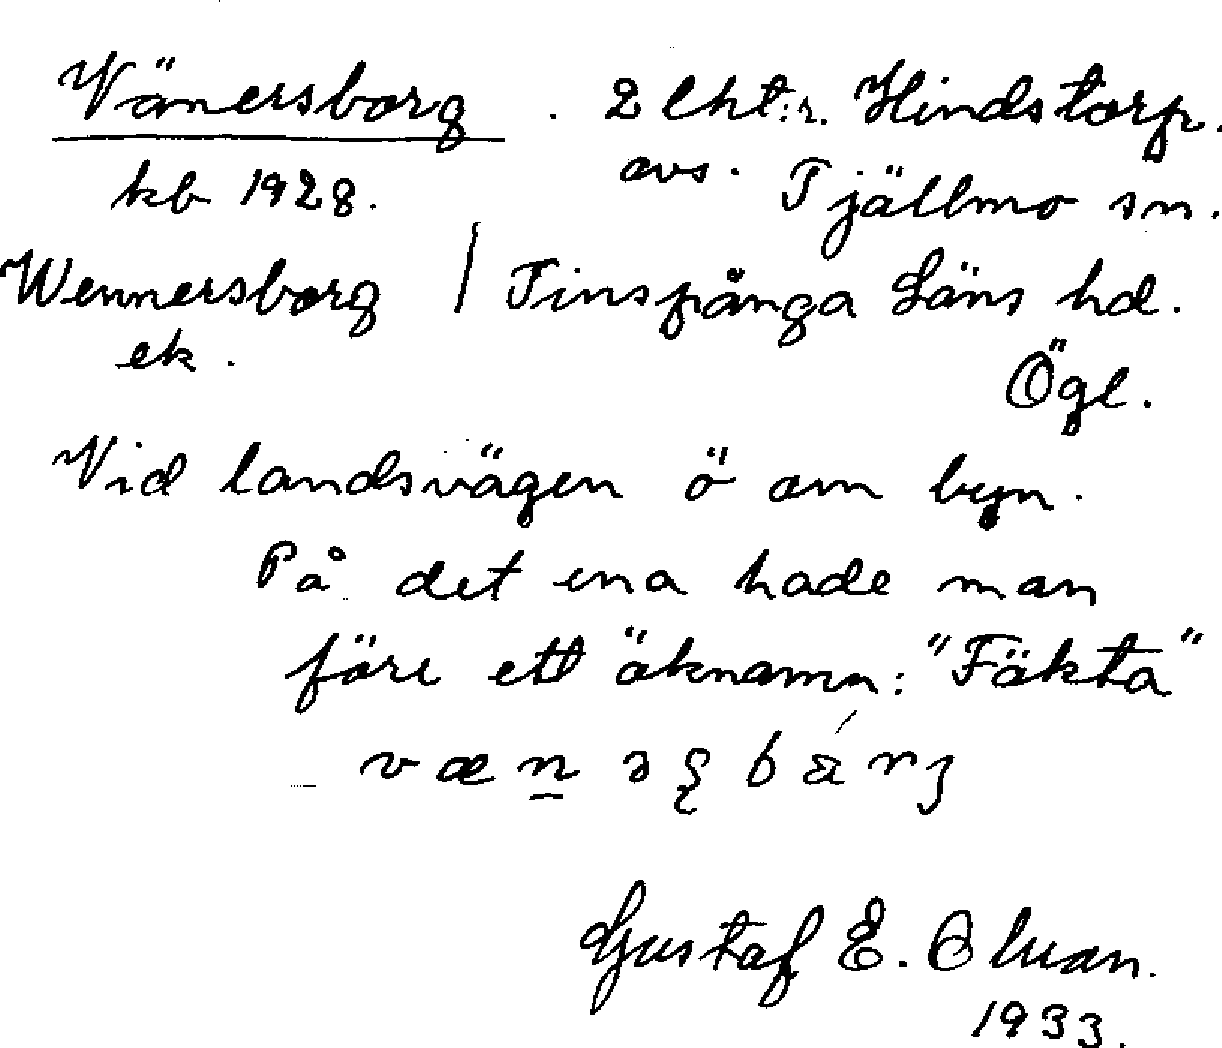 Vänersborg . 2 lht:r. Hindstorp.
kb 1928. avs. Tjällmo sn.
Wennersborg / Finspånga Läns hd.
ek. Ögl.
Vid landsvägen ö om byn.
På det ena hade man
före ett öknamn: "Fäkta"
Gustaf E.
1933.